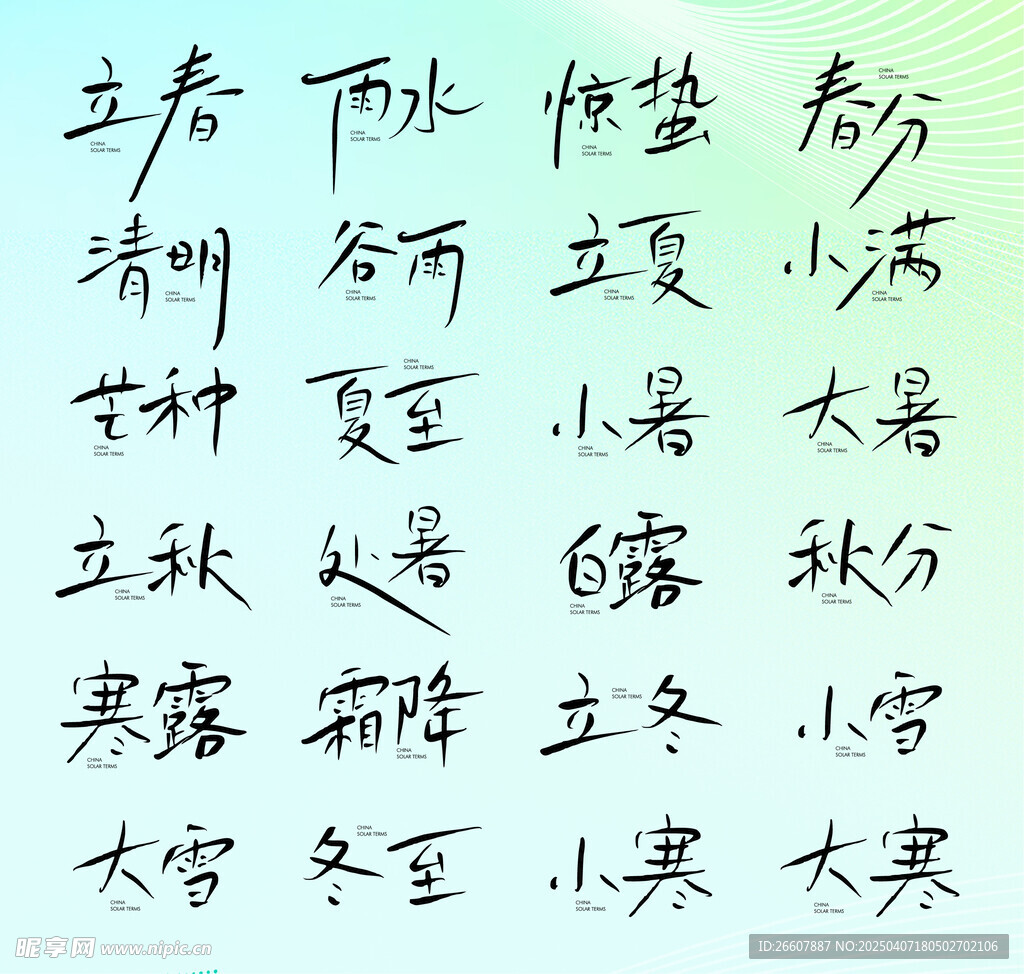 立春 CHINA SOLAR TERMS
雨水 CHINA SOLAR TERMS
惊蛰 CHINA SOLAR TERMS
春分 CHINA SOLAR TERMS
清明 CHINA SOLAR TERMS
谷雨 CHINA SOLAR TERMS
立夏 CHINA SOLAR TERMS
小满 CHINA SOLAR TERMS
芒种 CHINA SOLAR TERMS
夏至 CHINA SOLAR TERMS
小暑 CHINA SOLAR TERMS
大暑 CHINA SOLAR TERMS
立秋 CHINA SOLAR TERMS
处暑 CHINA SOLAR TERMS
白露 CHINA SOLAR TERMS
秋分 CHINA SOLAR TERMS
寒露 CHINA SOLAR TERMS
霜降 CHINA SOLAR TERMS
立冬 CHINA SOLAR TERMS
小雪 CHINA SOLAR TERMS
大雪 CHINA SOLAR TERMS
冬至 CHINA SOLAR TERMS
小寒 CHINA SOLAR TERMS
大寒 CHINA SOLAR TERMS
昵享网 www.nipic.cn
ID:26607887 NO:20250407180502702106